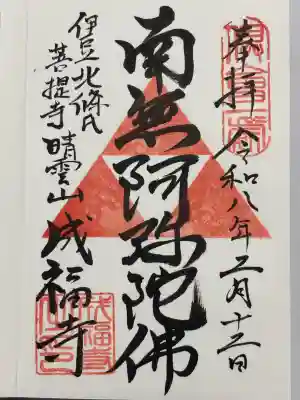 奉拝 令和八年二月十二日
南無阿弥陀佛
伊豆北條氏
菩提寺晴雲山成福寺
成福寺